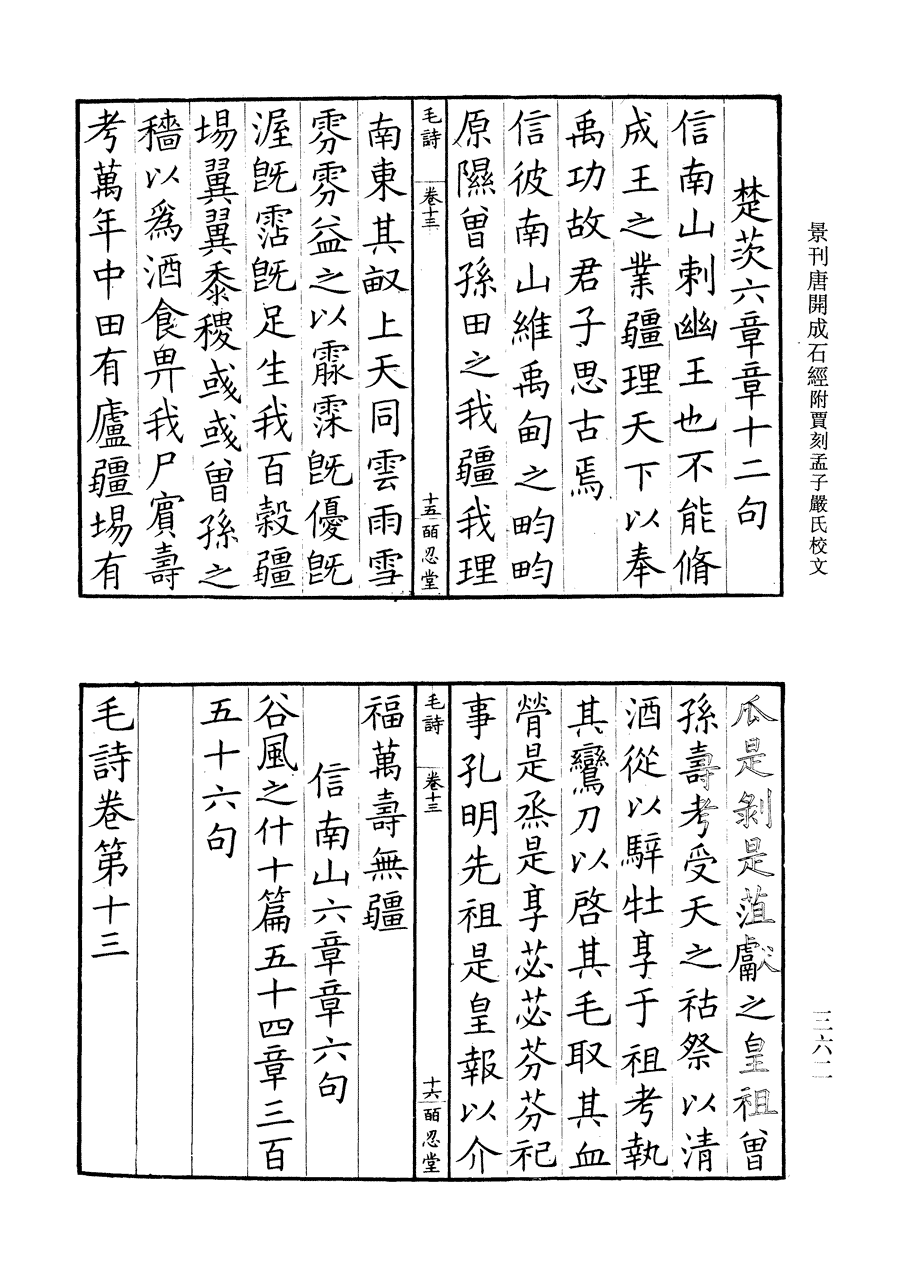 景刊唐開成石經附賈刻孟子嚴氏校文
楚茨六章章十二句
信南山刺幽王也不能脩
成王之業疆理天下以奉
禹功故君子思古焉
信彼南山維禹甸之畇畇
原隰曾孫田之我疆我理
毛詩 卷十三 十五 皕忍堂
南東其畝上天同雲雨雪
雰雰益之以霡霂旣優旣
渥旣霑旣足生我百穀疆
場翼翼黍稷彧彧曾孫之
穡以爲酒食畀我尸賓壽
考萬年中田有廬疆場有
瓜是剝是菹獻之皇祖曾
孫壽考受天之祜祭以清
酒從以騂牡享于祖考執
其鸞刀以啓其毛取其血
膋是烝是享苾苾芬芬祀
事孔明先祖是皇報以介
毛詩 卷十三 十六 皕忍堂
福萬壽無疆
信南山六章章六句
谷風之什十篇五十四章三百
五十六句
毛詩卷第十三
三六二